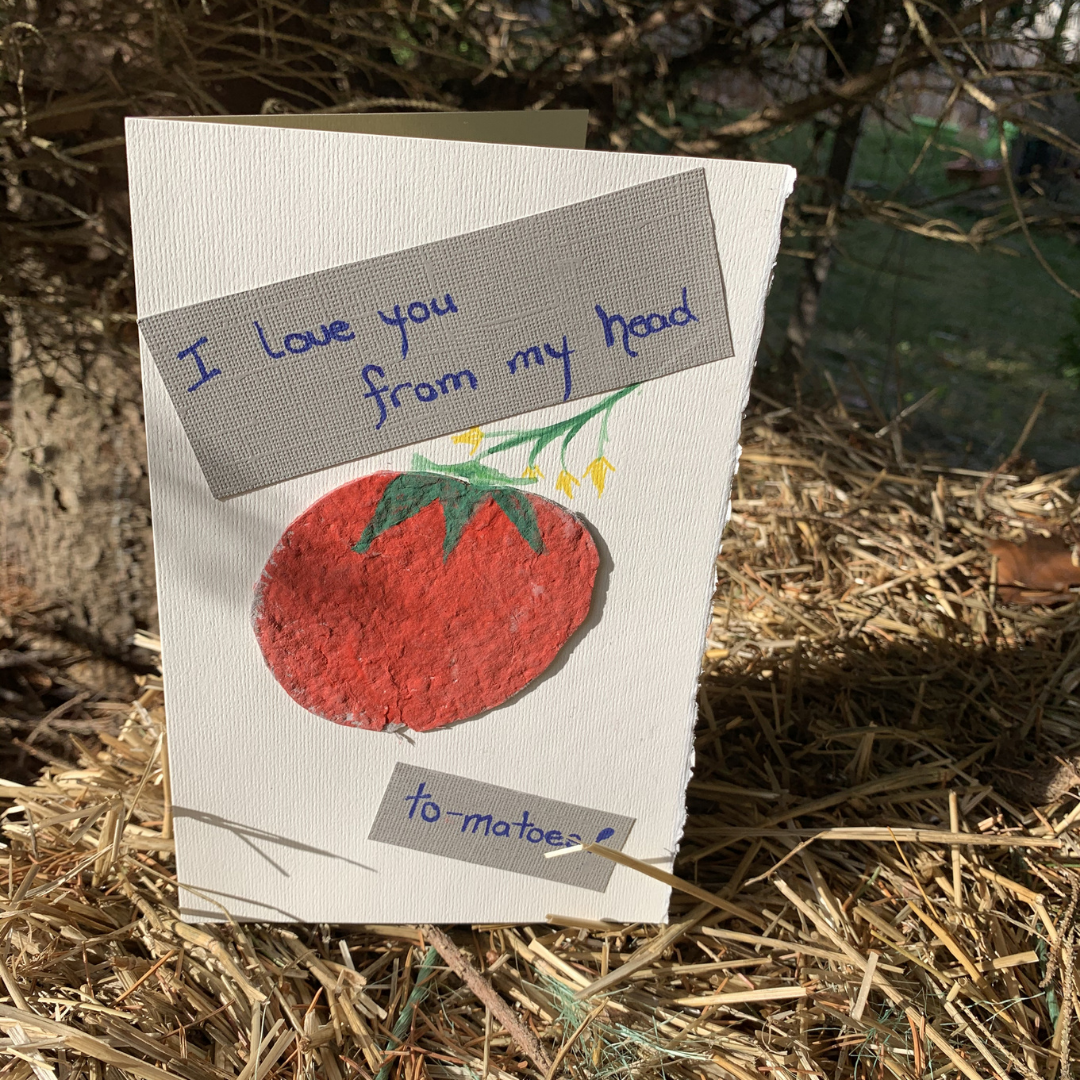 I love you
from my head
to-matoes!